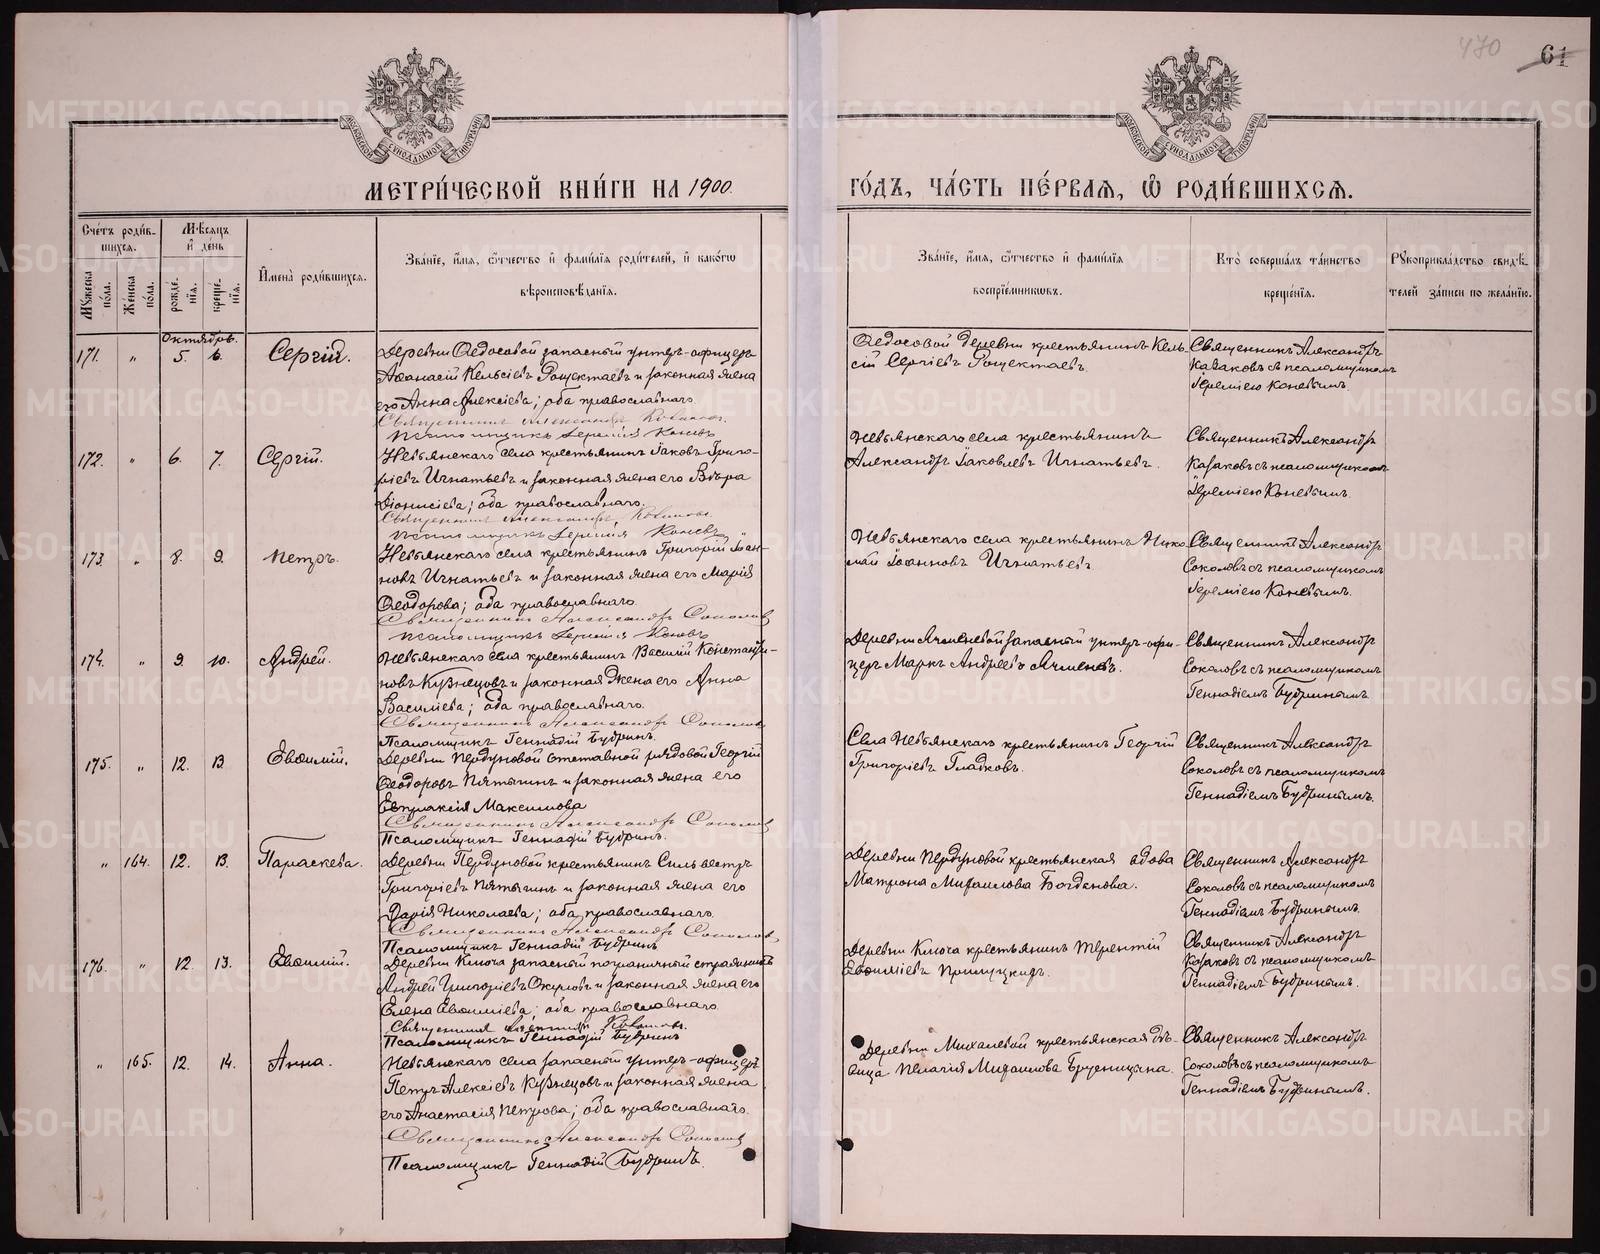 470
61
МОСКОВСКОЙ СѴНОДАЛЬНОЙ ТИПОГРАФІИ
МОСКОВСКОЙ СѴНОДАЛЬНОЙ ТИПОГРАФІИ
МЕТРИ́ЧЕСКОЙ КНИ́ГИ НА 1900.
ГО́ДЪ, ЧА́СТЬ ПЕ́РВАЯ, Ѽ РОДИ́ВШИХСЯ.
Сче́тъ роди́в-
шихся.
Мꙋ́жеска по́ла.
Же́нска по́ла.
Мѣ́сяцъ и҆ де́нь
рожде́-
нїя.
креще́-
нїя.
И҆мена̀ роди́вшихся.
Зва́нїе, и҆́мя, ѻ҆́тчество и҆ фами́лїя роди́телей, и҆ како́гѡ
вѣроисповѣ́данїя.
Зва́нїе, и҆́мя, ѻ҆́тчество и҆ фами́лїя
воспрїе́мникѡвъ.
Кто̀ соверша́лъ та́инство
креще́нїя.
Рꙋкоприкла́дство свидѣ́-
телей за́писи по жела́нїю.
Октябрь.
171. „ 5. 6. Сергій.
Деревни Ѳедосовой запасный унтеръ-офицеръ
Аѳанасій Кельсіевъ Рощектаевъ и законная жена
его Анна Алексіева; оба православнаго.
Священникъ Александръ Казаковъ.
Псаломщикъ Іеремія Коневъ
Ѳедосовой деревни крестьянинъ Кель-
сій Сергіевъ Рощектаевъ.
Священникъ Александръ
Казаковъ съ псаломщикомъ
Іереміею Коневымъ.
172. „ 6. 7. Сергій.
Невьянскаго села крестьянинъ Іаковъ Григо-
ріевъ Игнатьевъ и законная жена его Вѣра
Діонисіева; оба православнаго.
Священникъ Александръ Казаковъ.
Псаломщикъ Іеремія Коневъ
Невьянскаго села крестьянинъ
Александръ Іаковлевъ Игнатьевъ.
Священникъ Александръ
Казаковъ съ псаломщикомъ
Іереміею Коневымъ.
173. „ 8. 9. Петръ.
Невьянскаго села крестьянинъ Григорій Іоан-
новъ Игнатьевъ и законная жена его Марія
Ѳеодорова; оба православнаго.
Священникъ Александръ Соколовъ
Псаломщикъ Іеремія Коневъ
Невьянскаго села крестьянинъ Нико-
лай Іоанновъ Игнатьевъ.
Священникъ Александръ
Соколовъ съ псаломщикомъ
Іереміею Коневымъ.
174. „ 9. 10. Андрей.
Невьянскаго села крестьянинъ Василій Константи-
новъ Кузнецовъ и законная жена его Анна
Василіева; оба православнаго.
Священникъ Александръ Соколовъ
Псаломщикъ Геннадій Будринъ.
Деревни Ячменевой запасный унтеръ-офи-
церъ Маркъ Андреевъ Ячменевъ.
Священникъ Александръ
Соколовъ съ псаломщикомъ
Геннадіемъ Будринымъ.
175. „ 12. 13. Евѳимій.
Деревни Пердуновой отставной рядовой Георгій
Ѳеодоровъ Пятыгинъ и законная жена его
Евпраксія Максимова
Священникъ Александръ Соколовъ
Псаломщикъ Геннадій Будринъ.
Села Невьянскаго крестьянинъ Георгій
Григоріевъ Гладковъ.
Священникъ Александръ
Соколовъ съ псаломщикомъ
Геннадіемъ Будринымъ.
„ 164. 12. 13. Параскева.
Деревни Пердуновой крестьянинъ Сильвестръ
Григоріевъ Пятыгинъ и законная жена его
Дарія Николаева; оба православнаго.
Священникъ Александръ Соколовъ,
Псаломщикъ Геннадій Будринъ
Деревни Пердуновой крестьянская вдова
Матрона Михаилова Богданова.
Священникъ Александръ
Соколовъ съ псаломщикомъ
Геннадіемъ Будринымъ.
176. „ 12. 13. Евѳимій.
Деревни Ключа запасный пограничный стражникъ
Андрей Григоріевъ Окуловъ и законная жена его
Елена Евѳиміева; оба православнаго
Священникъ Александръ Казаковъ.
Псаломщикъ Геннадій Будринъ
Деревни Ключа крестьянинъ Терентій
Евѳиміевъ Прилуцкихъ.
Священникъ Александръ
Казаковъ съ псаломщикомъ
Геннадіемъ Будринымъ.
„ 165. 12. 14. Анна.
Невьянскаго села запасный унтеръ-офицеръ
Петръ Алексіевъ Кузнецовъ и законная жена
его Анастасія Петрова; оба православнаго.
Священникъ Александръ Соколовъ
Псаломщикъ Геннадій Будринъ.
Деревни Михалевой крестьянская дѣ-
вица Пелагія Михаилова Брусницина.
Священникъ Александръ
Соколовъ съ псаломщикомъ
Геннадіемъ Будринымъ.
METRIKI.GASO-URAL.RU